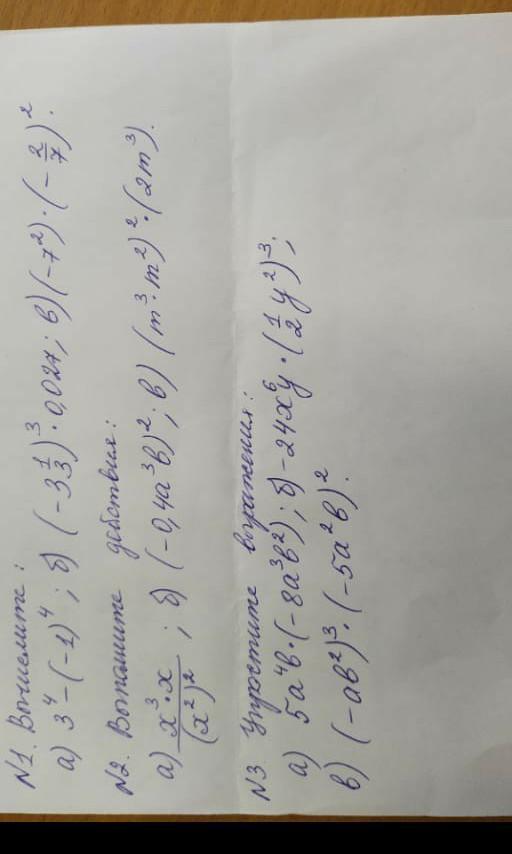 N1. Вычислите:
а) 3⁴ − (−1)⁴; б) (−3 1/3)³ · 0,027; в) (−7²) · (−2/7)².
N2. Выполните действия:
а) x³·x/(x²)²; б) (−0,4a³b)²; в) (m³·m²)²·(2m³).
N3 Упростите выражения:
а) 5a⁴b·(−8a³b²); б) −24x⁶y·(1/2 y²)³;
в) (−ab²)³·(−5a²b)².